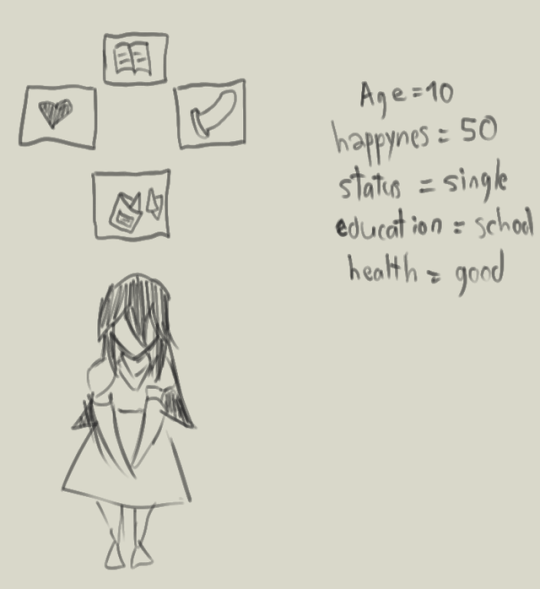 Age=10
happynes = 50
status = single
education = school
health = good